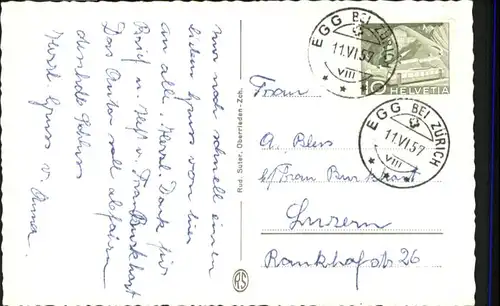 nur noch schnell einen
lieben Gruss von hier
an alle. Herzl. Dank für
Brief u. Heft u. Frau Burkhart
Das Auto soll abfahren
deshalb Schluss
Herzl. Gruss v. Anna
Rud. Suter, Oberrieden-Zch.
RS
EGG BEI ZÜRICH
11.VI.57
VIII
10 HELVETIA
EGG BEI ZÜRICH
11.VI.57
VIII
Frau
A.
b/Frau Burkhart
Luzern
26